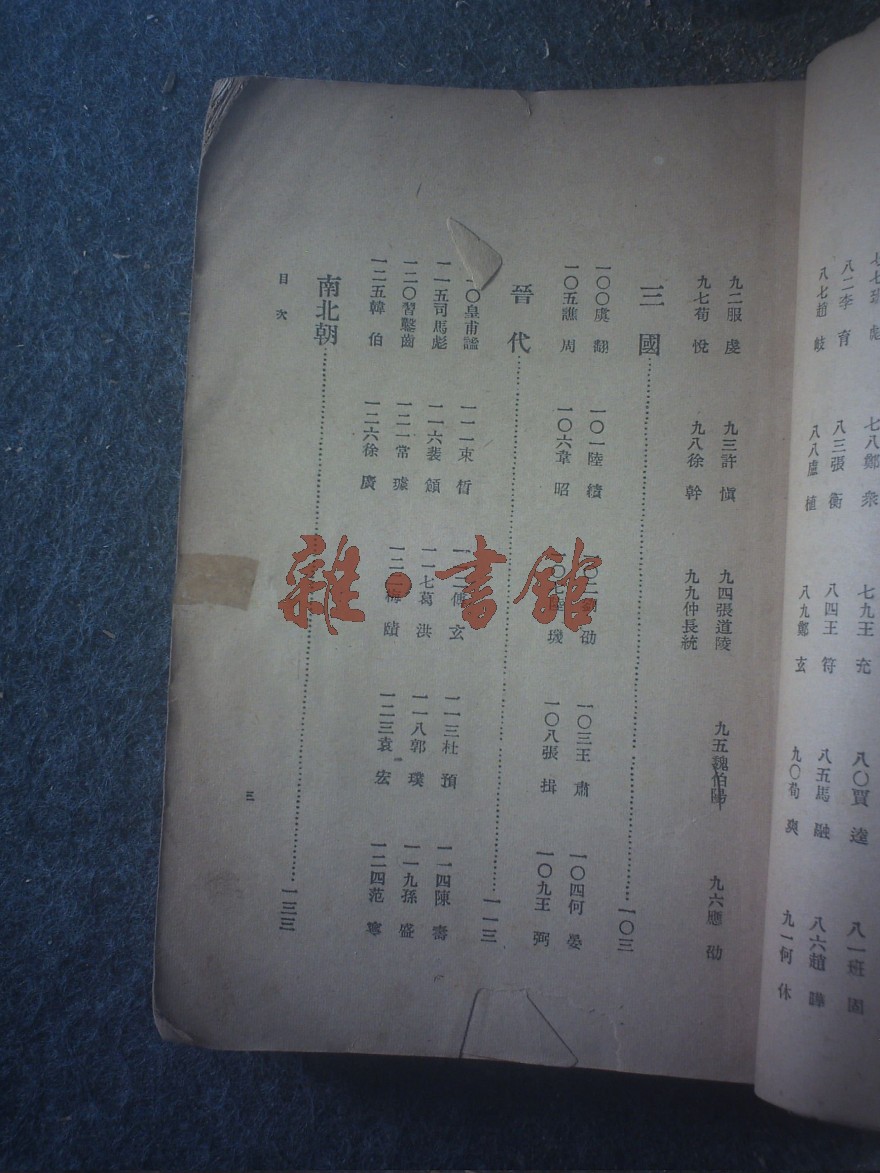 七七班彪 七八鄭衆 七九王充 八〇賈逵 八一班固
八二李育 八三張衡 八四王符 八五馬融 八六趙曄
八七趙岐 八八盧植 八九鄭玄 九〇荀爽 九一何休
九二服虔 九三許愼 九四張道陵 九五魏伯陽 九六應劭
九七荀悅 九八徐幹 九九仲長統
三國……一〇三
一〇〇虞翻 一〇一陸績 劭 一〇三王肅 一〇四何晏
一〇五譙周 一〇六韋昭 一〇七陸璣 一〇八張揖 一〇九王弼
晉代……一一三
〇皇甫謐 一一一束晳 一一二傅玄 一一三杜預 一一四陳壽
一一五司馬彪 一一六裴頠 一一七葛洪 一一八郭璞 一一九孫盛
一二〇習鑿齒 一二一常璩 一二二梅賾 一二三袁宏 一二四范寧
一二五韓伯 一二六徐廣
南北朝……一三三
目次
三
雜·書館